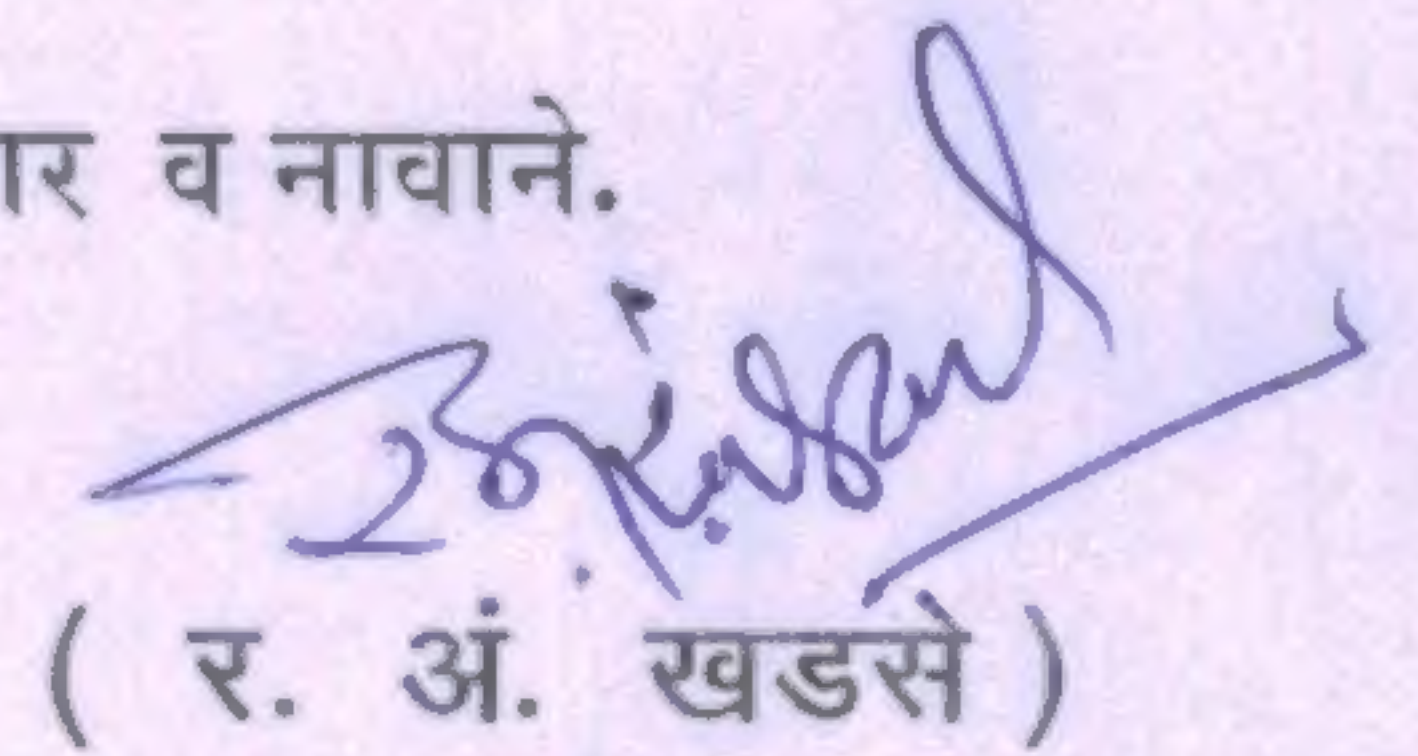 ार व नावाने.
( र. अं. खडसे )